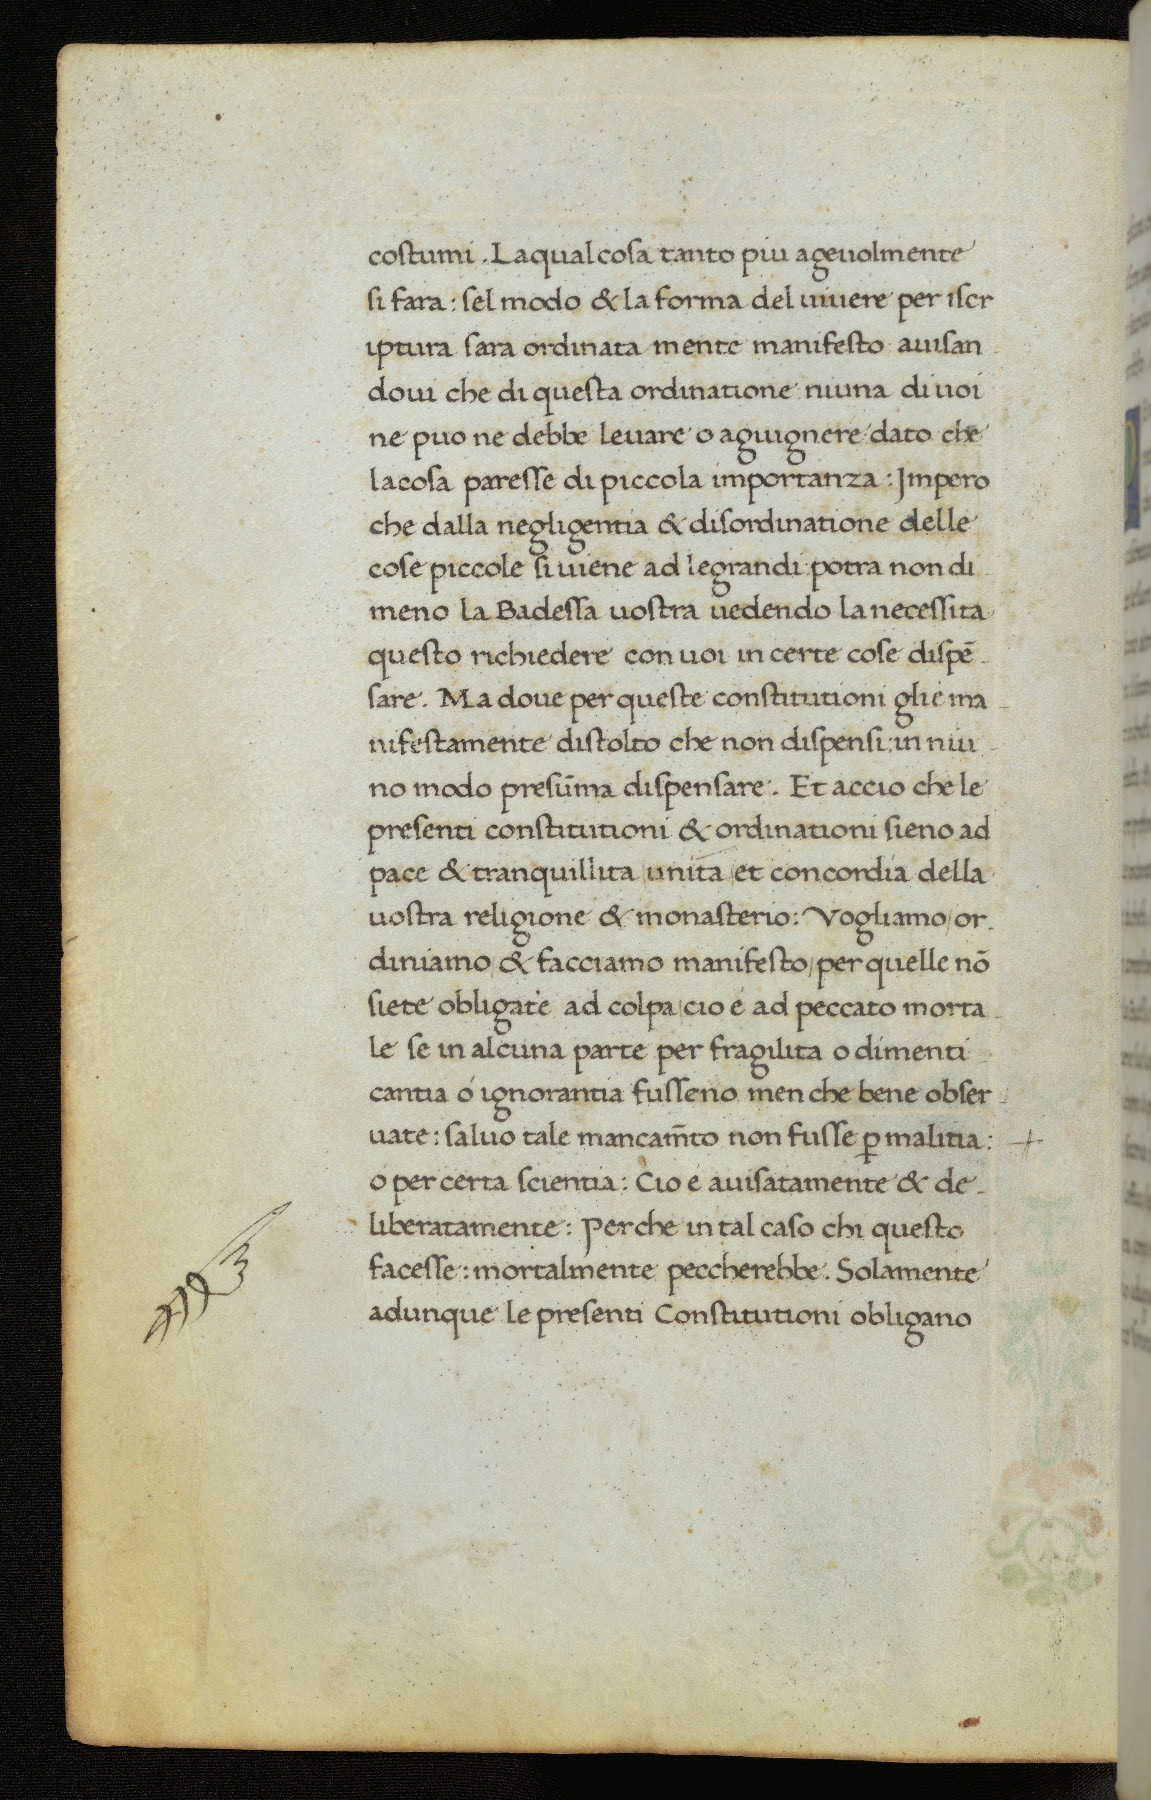 costumi. Laqual cosa tanto piu ageuolmente
si fara: sel modo & la forma del uiuere per iscr
iptura sara ordinata mente manifesto auisan
doui che di questa ordinatione niuna di uoi
ne puo ne debbe leuare o agiugnere dato che
la cosa paresse di piccola importanza: Impero
che dalla negligentia & disordinatione delle
cose piccole si uiene ad le grandi: potra non di
meno la Badessa uostra uedendo la necessita
questo richiedere con uoi in certe cose dispē
sare. Ma doue per queste constitutioni glie ma
nifestamente distolto che non dispensi: in niu
no modo presūma dispensare. Et accio che le
presenti constitutioni & ordinationi sieno ad
pace & tranquillita / unita / et concordia della
uostra religione & monasterio: Vogliamo / or
diniamo / & facciamo manifesto / per quelle nō
siete obligate ad colpa / cio é ad peccato morta
le se in alcuna parte per fragilita o dimenti
cantia ó ignorantia fusseno men che bene obser
uate: saluo tale mancam̄to non fusse ꝑ malitia:
o per certa scientia: Cio é auisatamente & de
liberatamente: Perche in tal caso chi questo
facesse: mortalmente peccherebbe. Solamente
adunque le presenti Constitutioni obligano